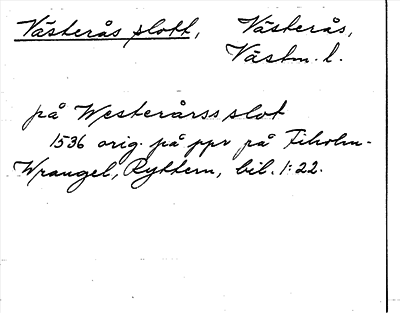 Västerås slott, Västerås,
Västm. l.
på Westerårss slot
1536 orig. på ppr på Fiholm-
Wrangel, Ryttern, bil. 1:22.